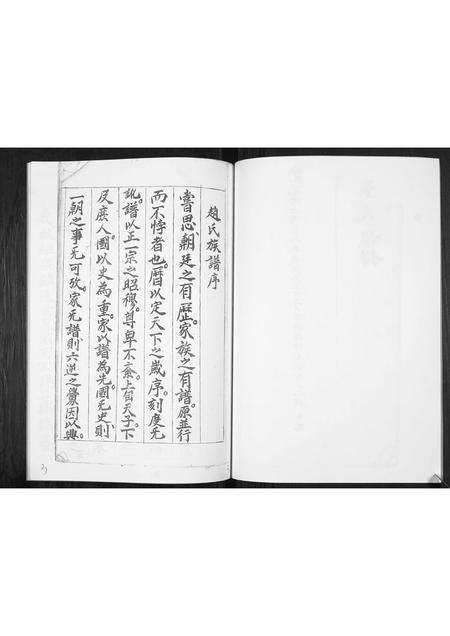 趙氏族譜序
嘗思朝廷之有歷。家族之有譜。原並行
而不悖者也。曆以定天下之歲序。刻度无
訛。譜以正一宗之昭穆。尊卑不紊。上自天子。下
及庶人。國以史為重。家以譜為先。國无史。則
一朝之事无可攷。家无譜。則六逆之釁因以興。
3